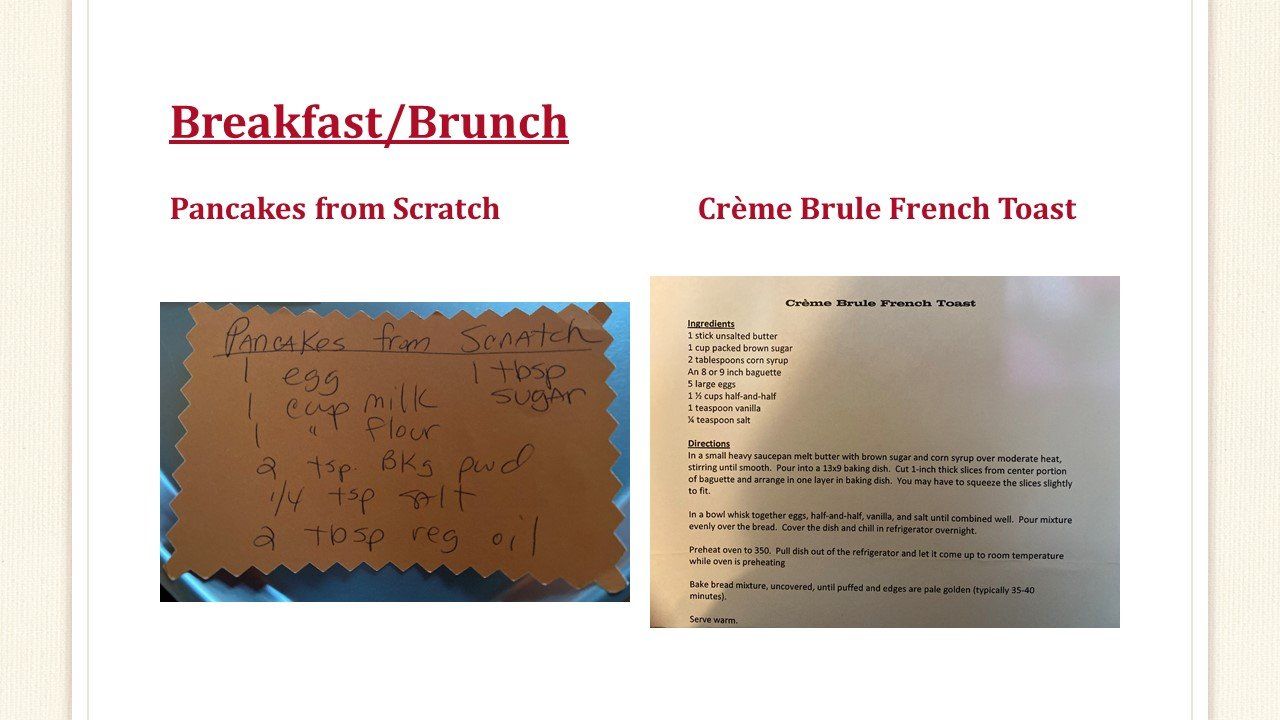 Breakfast/Brunch
Pancakes from Scratch
PANCAKes from ScrAtch
1 egg
1 cup milk
1 " flour
2 tsp. BKg pwd
1/4 tsp sAlt
2 tbsp reg oil
1 tbsp
sugAr
Crème Brule French Toast
Crème Brule French Toast
Ingredients
1 stick unsalted butter
1 cup packed brown sugar
2 tablespoons corn syrup
An 8 or 9 inch baguette
5 large eggs
1 ½ cups half-and-half
1 teaspoon vanilla
¼ teaspoon salt
Directions
In a small heavy saucepan melt butter with brown sugar and corn syrup over moderate heat,
stirring until smooth. Pour into a 13x9 baking dish. Cut 1-inch thick slices from center portion
of baguette and arrange in one layer in baking dish. You may have to squeeze the slices slightly
to fit.
In a bowl whisk together eggs, half-and-half, vanilla, and salt until combined well. Pour mixture
evenly over the bread. Cover the dish and chill in refrigerator overnight.
Preheat oven to 350. Pull dish out of the refrigerator and let it come up to room temperature
while oven is preheating
Bake bread mixture, uncovered, until puffed and edges are pale golden (typically 35-40
minutes).
Serve warm.